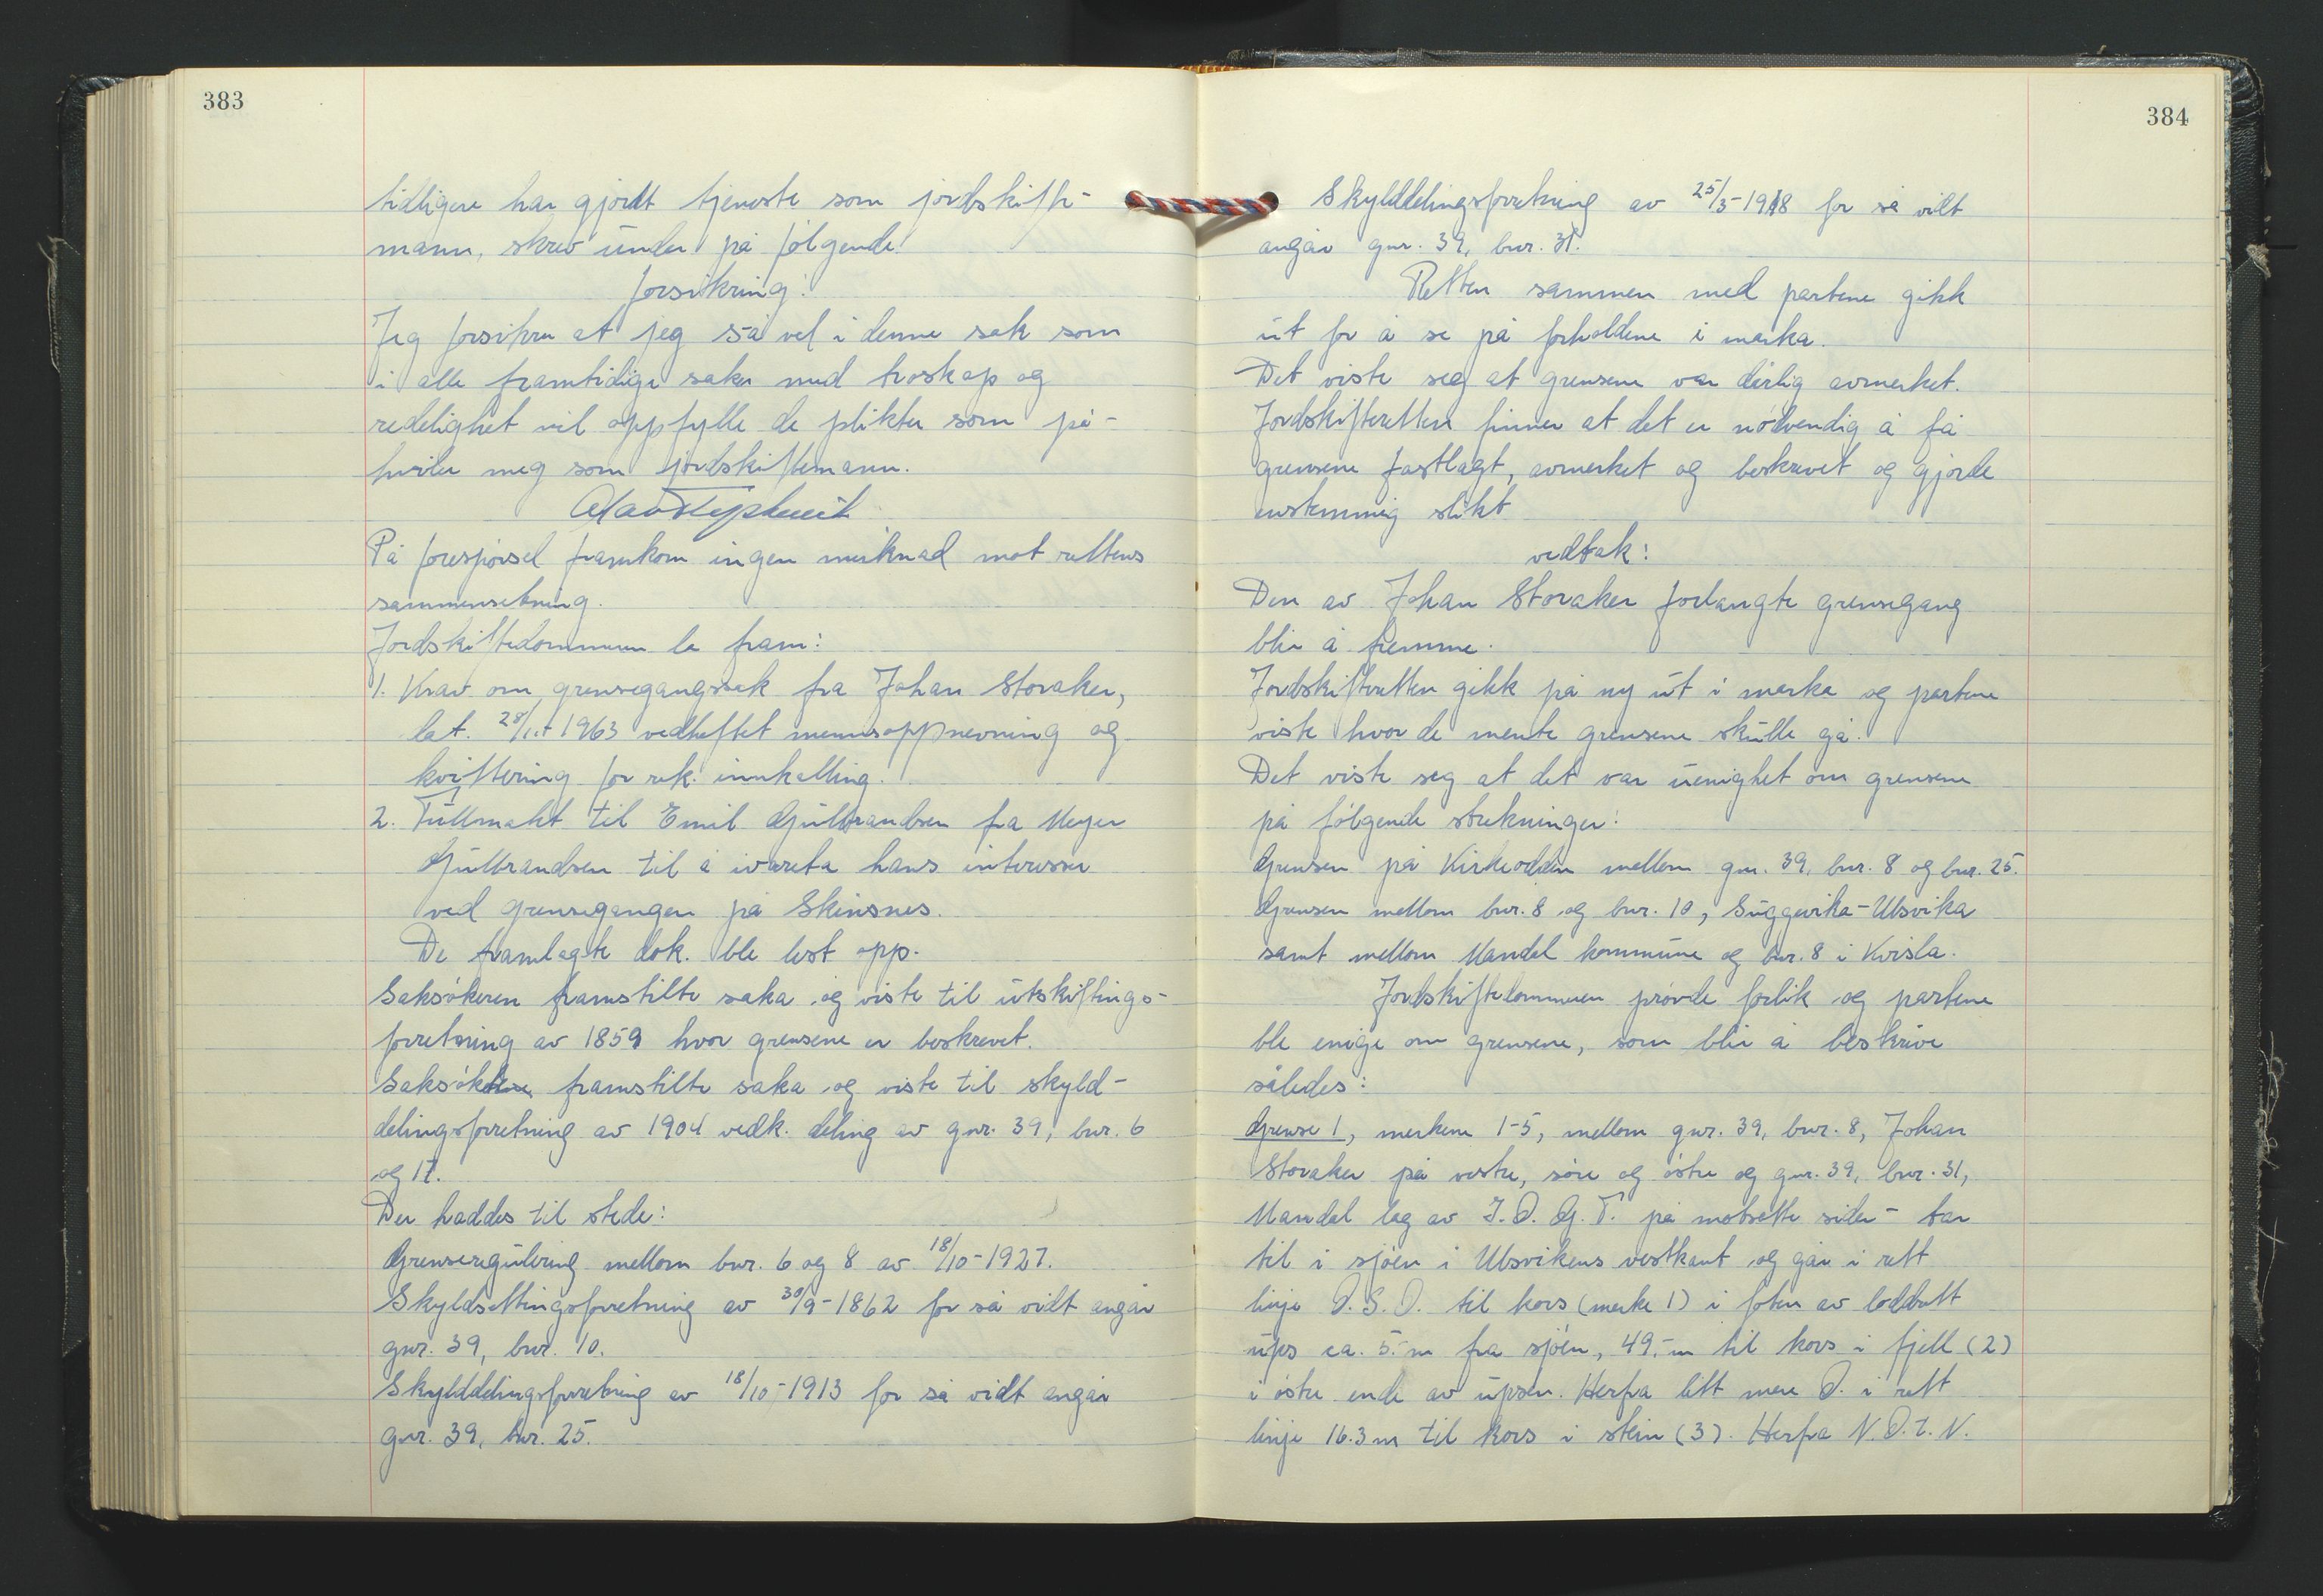 383
tidligere har gjordt tjeneste som jordskifte-
mann, skrev under på følgende
forsikring:
Jeg forsikrer at jeg så vel i denne sak som
i alle framtidige saker med troskap og
redelighet vil oppfylle de plikter som på-
hviler meg som jordskiftemann.
På forespørsel framkom ingen merknad mot rettens
sammensetning.
Jordskiftedommeren la fram:
1. Krav om grensegangssak fra Johan Storaker,
dat. 1963 vedheftet mennsoppnevning og
kvittering for rek. innkalling.
2. Fullmakt til Emil Gulbrandsen fra Meyer
Gulbrandsen til å ivareta hans interesser
ved grensegangen på Skinsnes.
De framlagte dok. ble lest opp.
Saksøkeren framstilte saka og viste til utskiftings-
forretning av 1859 hvor grensene er beskrevet.
Saksøkte framstilte saka og viste til skyld-
delingsforretning av 1904 vedk. deling av gnr. 39, bnr. 6
og 17.
Der haddes til stede:
Grenseregulering mellom bnr. 6 og 8 av 18/10-1927.
Skyldsettingsforretning av 30/9-1862 for så vidt angår
gnr. 39, bnr. 10.
Skylddelingsforretning av 18/10-1913 for så vidt angår
gnr. 39, bnr. 25.
384
Skylddelingsforretning av 25/5-1918 for så vidt
angår gnr. 39, bnr. 31.
Retten sammen med partene gikk
ut for å se på forholdene i marka.
Det viste seg at grensene var dårlig avmerket.
Jordskifteretten finner at det er nødvendig å få
grensene fastlagt, avmerket og beskrevet og gjorde
enstemmig slikt
vedtak:
Den av Johan Storaker forlangte grensegang
blir å fremme.
Jordskifteretten gikk på ny ut i marka og partene
viste hvor de mente grensene skulle gå.
Det viste seg at det var uenighet om grensene
på følgende strekninger:
Grensen på Kirkeodden mellom gnr. 39, bnr. 8 og bnr. 25.
Grensen mellom bnr. 8 og bnr. 10, Suggevika-Ulsvika
samt mellom Mandal kommune og bnr. 8 i Kvisla.
Jordskiftedommeren prøvde forlik og partene
ble enige om grensene, som blir å beskrive
således:
Grense 1, merkene 1-5, mellom gnr. 39, bnr. 8, Johan
Storaker på vestre, søre og østre og gnr. 39, bnr. 31,
Mandal lag av I.O.G.T. på motsatte sider - tar
til i sjøen i Ulsvikens vestkant og går i rett
linje Ø.S.Ø. til kors (merke 1) i foten av loddrett
ups ca. 5.-m fra sjøen, 49.-m til kors i fjell (2)
i østre ende av upsen. Herfra litt mere Ø. i rett
linje 16.3 m til kors i stein (3). Herfra N.Ø.t.N.